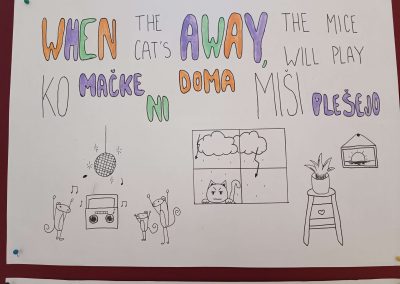 WHEN THE CAT'S AWAY, THE MICE WILL PLAY
KO MAČKE NI DOMA MIŠI PLEŠEJO